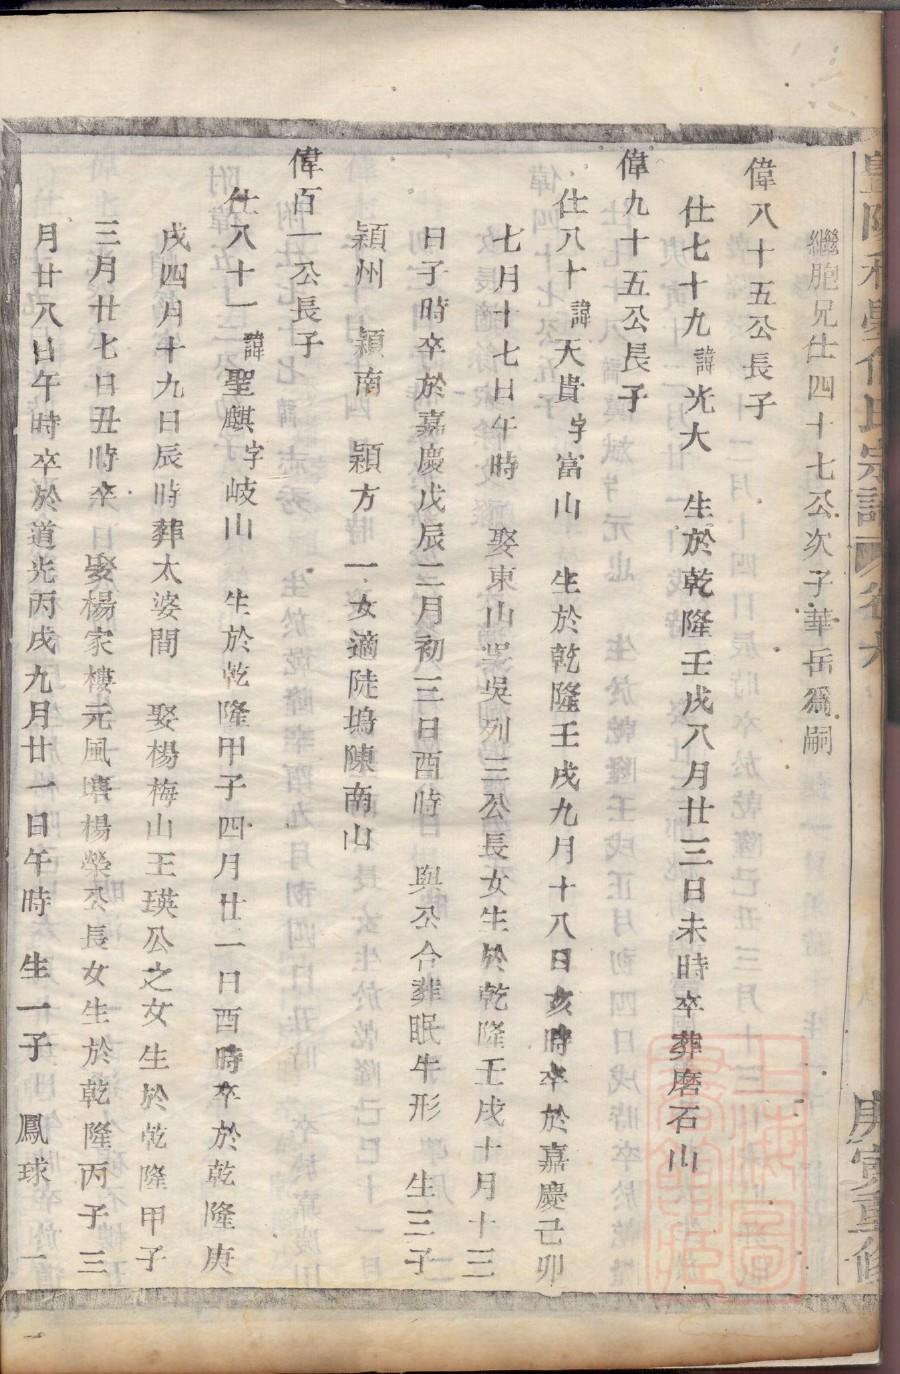 繼胞兄仕四十七公次子華岳爲嗣
偉八十五公長子
仕七十九諱光大 生於乾隆壬戌八月廿三日未時卒葬磨石山
偉九十五公長子
仕八十諱天貴字富山 生於乾隆壬戌九月十八日亥時卒於嘉慶己卯
七月十七日午時 娶東山吳吳列三公長女生於乾隆壬戌十月十三
日子時卒於嘉慶戊辰二月初三日酉時 與公合葬眠牛形 生三子
穎州 穎南 穎方 一女適陡塢陳南山
偉百一公長子
仕八十一諱聖麒字岐山 生於乾隆甲子四月廿一日酉時卒於乾隆庚
戌四月十九日辰時葬太婆間 娶楊梅山王瑛公之女生於乾隆甲子
三月廿七日丑時卒 娶楊家樓元風 楊榮公長女生於乾隆丙子三
月廿八日午時卒於道光丙戌九月廿一日午時 生一子 鳳球 一
氏宗譜 卷六 庚寅重修